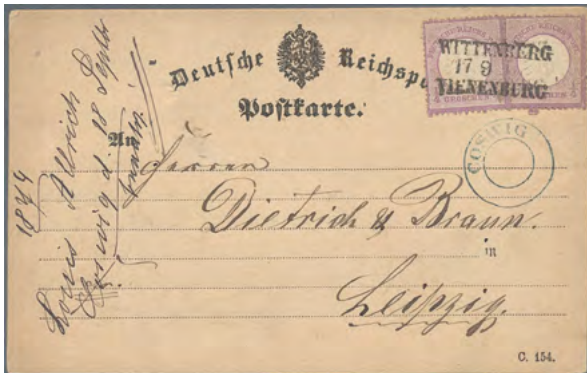 Deutsche Reichspo
Postkarte.
WITTENBERG
17 9
VIENENBURG
COSWIG
An
Herren
Dietrich & Braun.
in
Leipzig.
C. 154.
1874
Louis Allrich
Coswig d. 18 Septbr